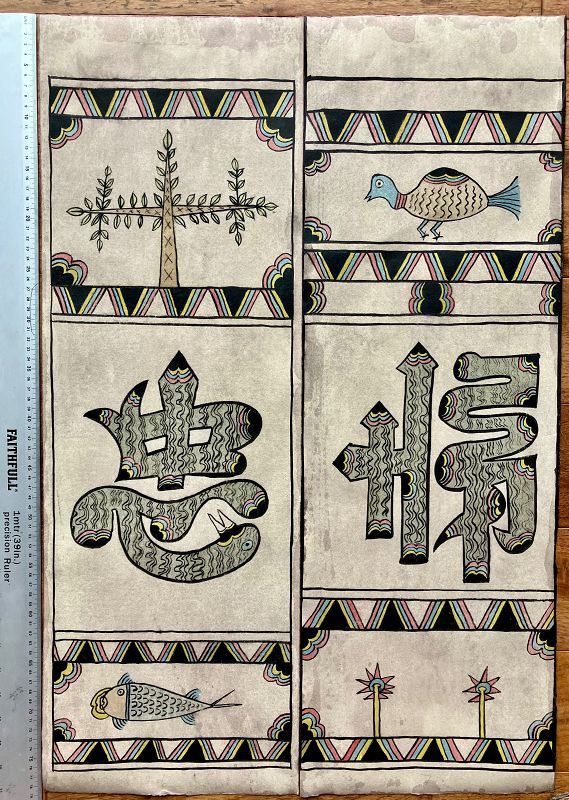 悌
忠
FAITHFULL
1mtr (39in.)
precision Ruler